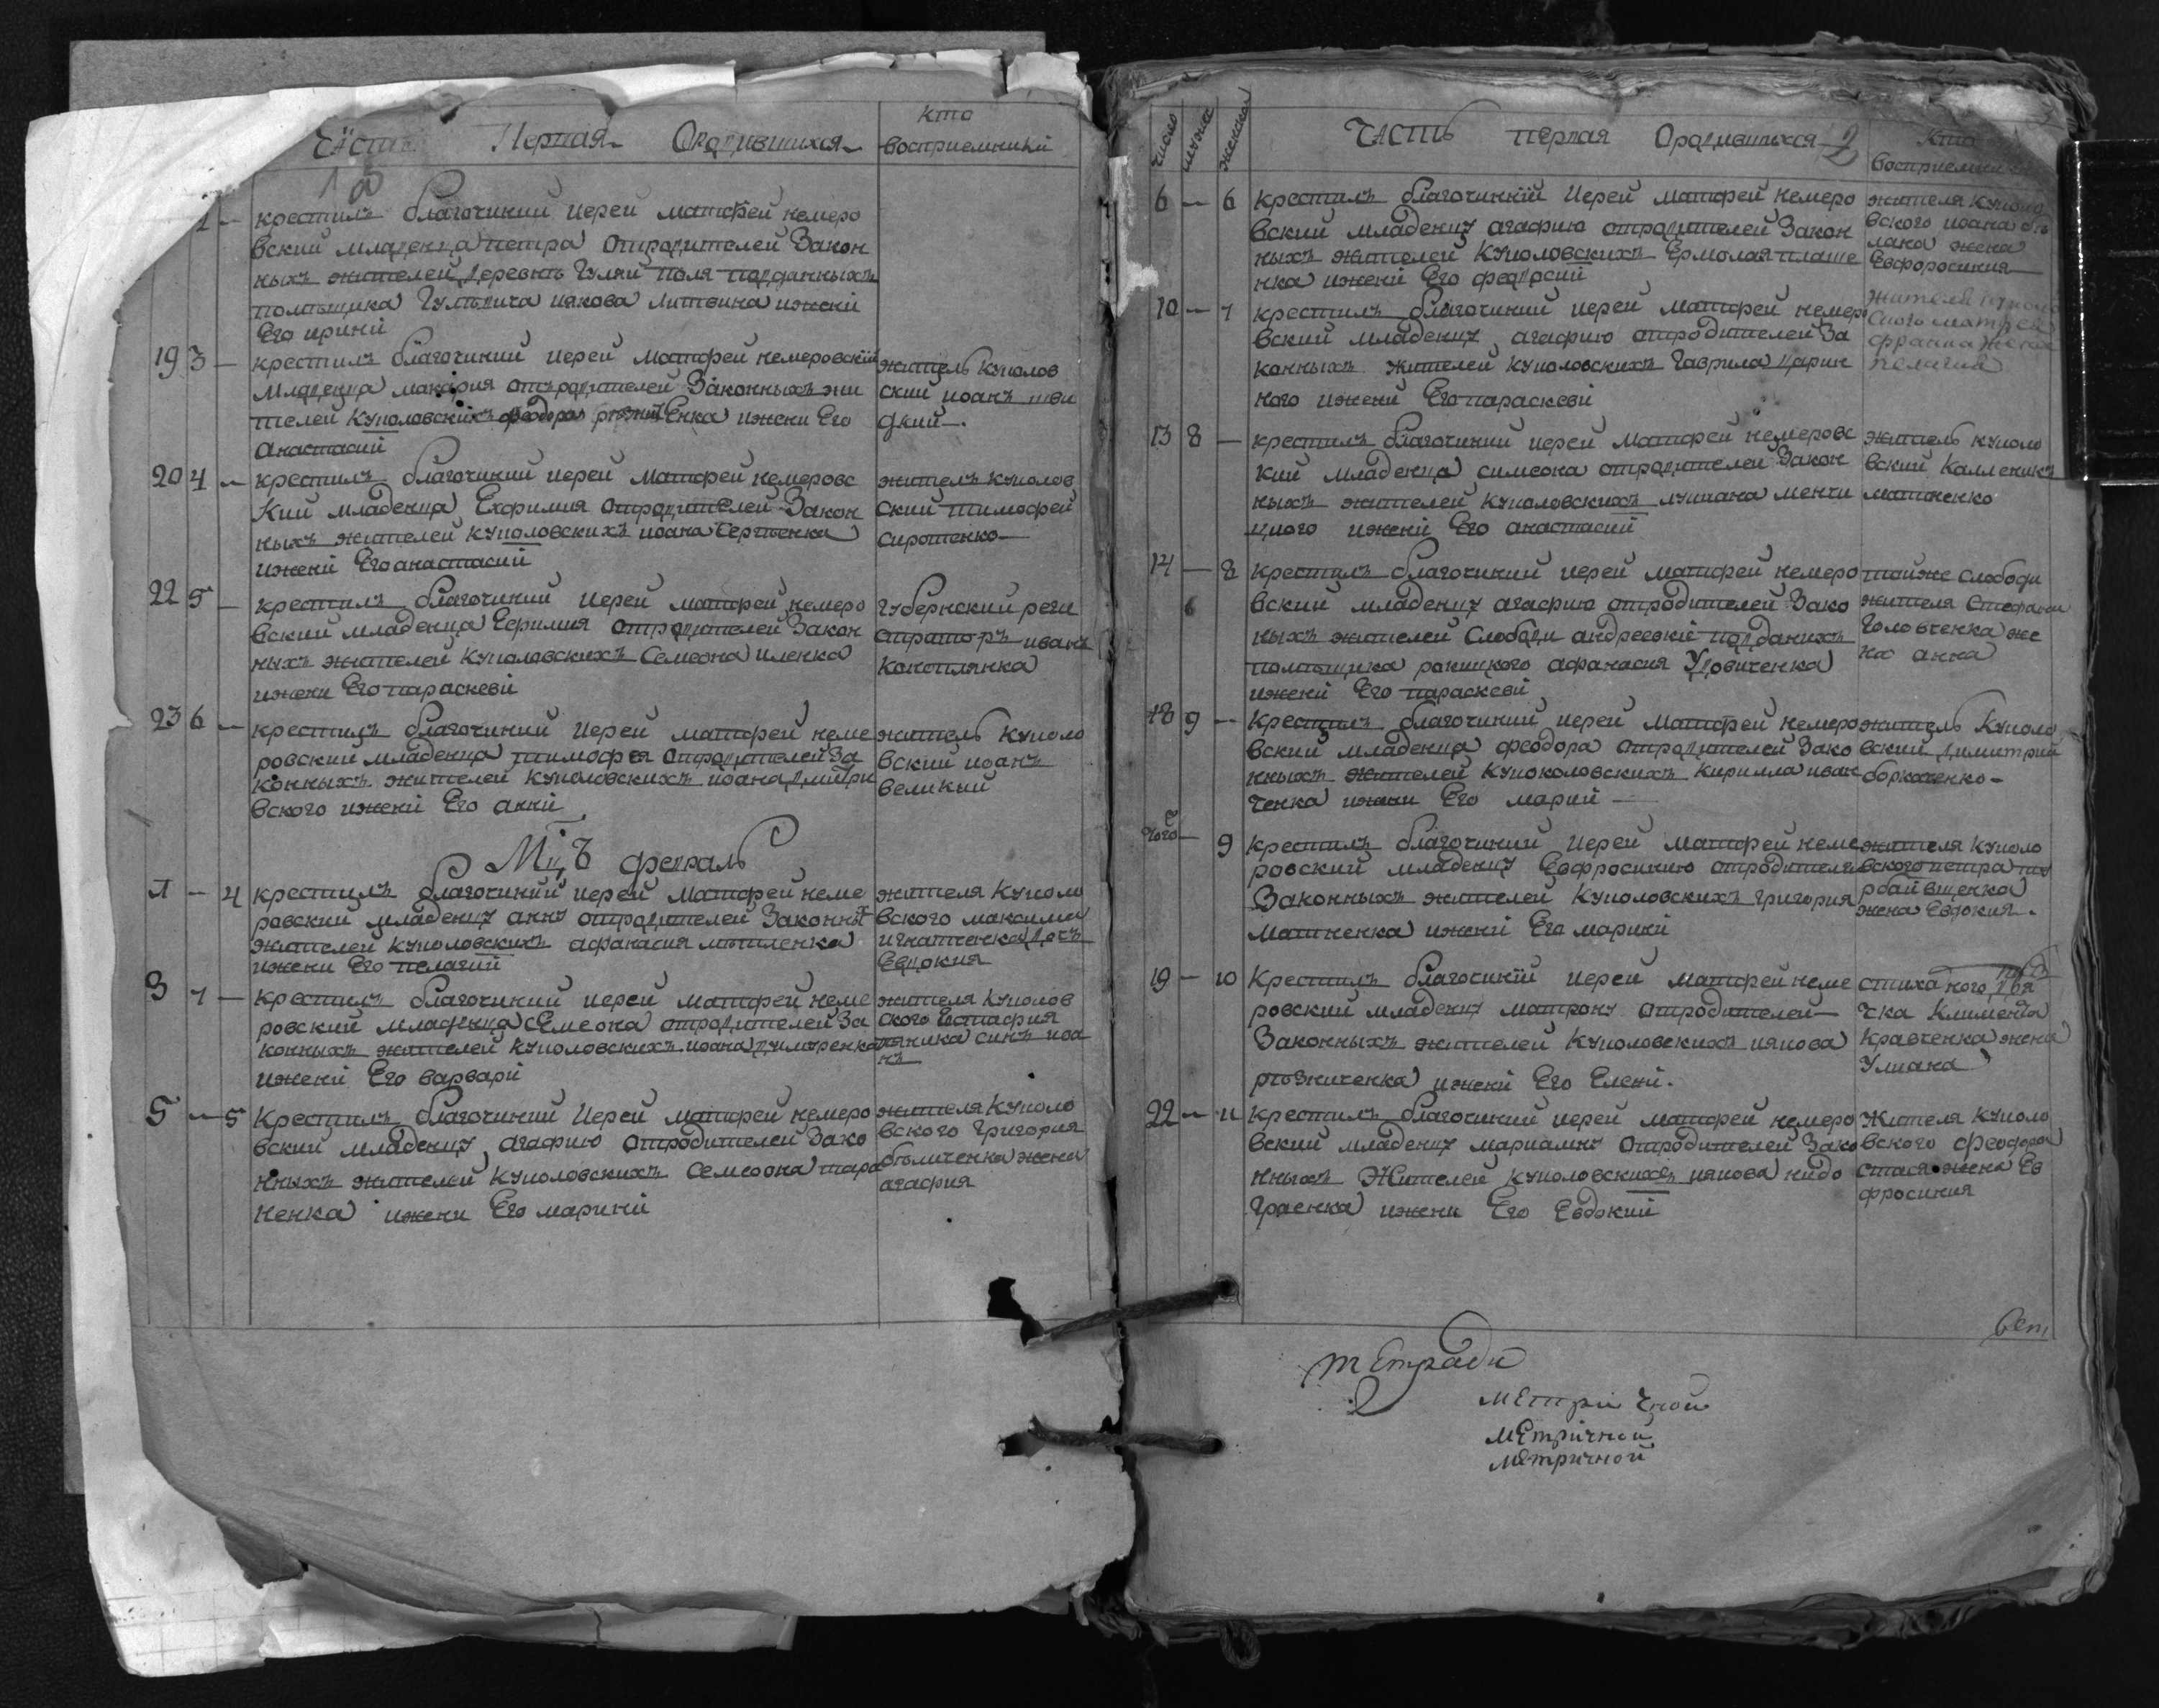 Часть Первая Ородившихся
кто
восприемники
крестилъ благочиний иерей матфей немеро
вский младенца петра отродителей Закон
ныхъ жителей деревнѣ Гуляй поля подданныхъ
помѣщика иякова литвина ижени
Его ирини
19 3 — крестилъ благочиний иерей матфей немеровский
младенца макария отъродителей Законныхъ жи
телей куполовскихъ феодора Енка ижени Его
анастасий
житель куполов
ский иоанъ шви
дкий —.
20 4 — крестилъ благочиний иерей матфей немеровс
кий младенца Ехфимия отродителей Закон
ныхъ жителей куполовскихъ иоана Сергѣенка
ижени Его анастасий
жителъ куполов
ский тимофей
сиротенко —
22 5 — крестилъ благочиний иерей матфей немеро
вский младенца отродителей Закон
ныхъ жителей куполовскихъ Семеона иленка
ижени Его параскеви
губернский реги
стратор иванъ
коноплянка
23 6 — крестилъ благочиний иерей матфей неме
ровский младенца тимофея отродителей За
конныхъ жителей куполовскихъ иоана дмитри
вского ижени Его анни
житель куполо
вский иоанъ
великий
Мцъ февраль
1 — 4 крестилъ благочиний иерей матфей неме
ровский младенцу анну отродителей Законныхъ
жителей куполовскихъ афанасия
ижени Его пелагий
жителя куполо
вского максима
игнатченка дочъ
Евдокия
3 7 — крестилъ благочиний иерей матфей неме
ровский младенца сЕмеона отродителей За
конныхъ жителей куполовскихъ иоана
ижени Его варвари
жителя куполов
ского Естафия
синъ иоа
нъ
5 — 5 Крестилъ благочиний Иерей матфей немеро
вский младенцу агафию отродителей Зако
нныхъ жителей куполовскихъ семеона тара
ненка ижени Его марини
жителя куполо
вского Григория
бѣличенка жена
агафия
число мужеска женска
ЧАСТЬ первая Ородившихся 2
Кто
восприемники
6 — 6 крестилъ благочиний Иерей матфей немеро
вский младенцу агафию отродителей Закон
ныхъ жителей куполовскихъ Ермолая плаше
нка ижени Его феодосий
жителя куполо
вского иоана
жена
Евфоросиния
10 — 7 крестилъ благочиний иерей матфей немеро
вский младенцу агафию отродителей За
конныхъ жителей куполовскихъ Гаврила
ного ижени Его параскеви
жителя куполо
матфея
жена
пелагия
13 8 — крестилъ благочиний иерей матфей немеровс
кий младенца симеона отродителей Закон
ныхъ жителей куполовскихъ менчи
цного ижени Его анастасий
житель куполо
вский Каллиникъ
матненко
14 — 8 крестилъ благочиний иерей матфей немеро
6 вский младенцу агафию отродителей Зако
ныхъ жителей слободи андреевки подданихъ
помѣщика ракицкого афанасия Удовиченка
ижени Его параскеви
тойже слободи
жителя Стефана
Головченка же
на анна
18 9 — крестилъ благочиний иерей матфей немеро
вский младенца феодора отродителей Зако
нныхъ жителей купололовскихъ Кирилла иван
ченка ижени Его марий —
житель Куполо
вский димитрий
—
тогоже — 9 крестилъ благочиний Иерей матфей неме
ровский младенцу Евфросинию отродителей
Законныхъ жителей куполовскихъ григория
матненка ижени Его марини
жителя куполо
вского петра
жена Евдокия.
19 — 10 Крестилъ благочиний иерей матфей неме
ровский младенцу матрону отродителей —
Законныхъ жителей Куполовскихъ иякова
рѣзниченка ижени Его Елени.
стихарного дья
чка Климента
Кравченка жена
Улиана
22 — 11 крестилъ благочиний иерей матфей немеро
вский младенцу мариамну отродителей Зако
нныхъ Жителей куполовскихъ иякова недо
граенка ижени Его Евдокий
Жителя куполо
вского феодора
стася жена Ев
фросиния
тЕтради
2
мЕтричной
мЕтричной
мЕтричной